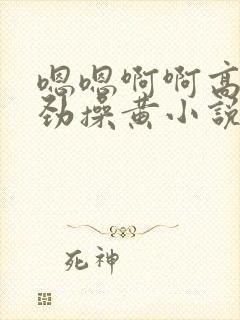 嗯嗯啊啊高
劲操黄小說
死神